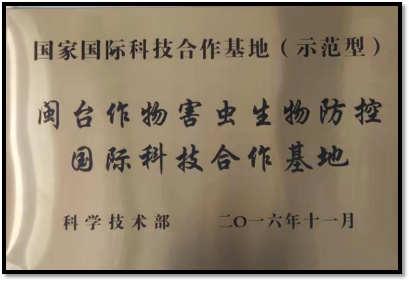 国家国际科技合作基地（示范型）
闽台作物害虫生物防控
国际科技合作基地
科学技术部 二〇一六年十一月